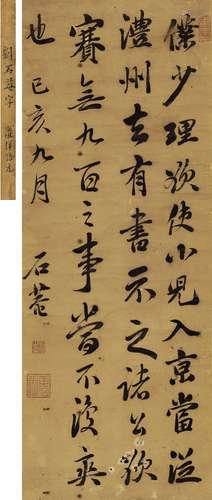 僕少理欲使小兒入京當從
澧州去有書示之諸公欲
賽無九百之事當不復爽
也 己亥九月
石菴
劉石菴字